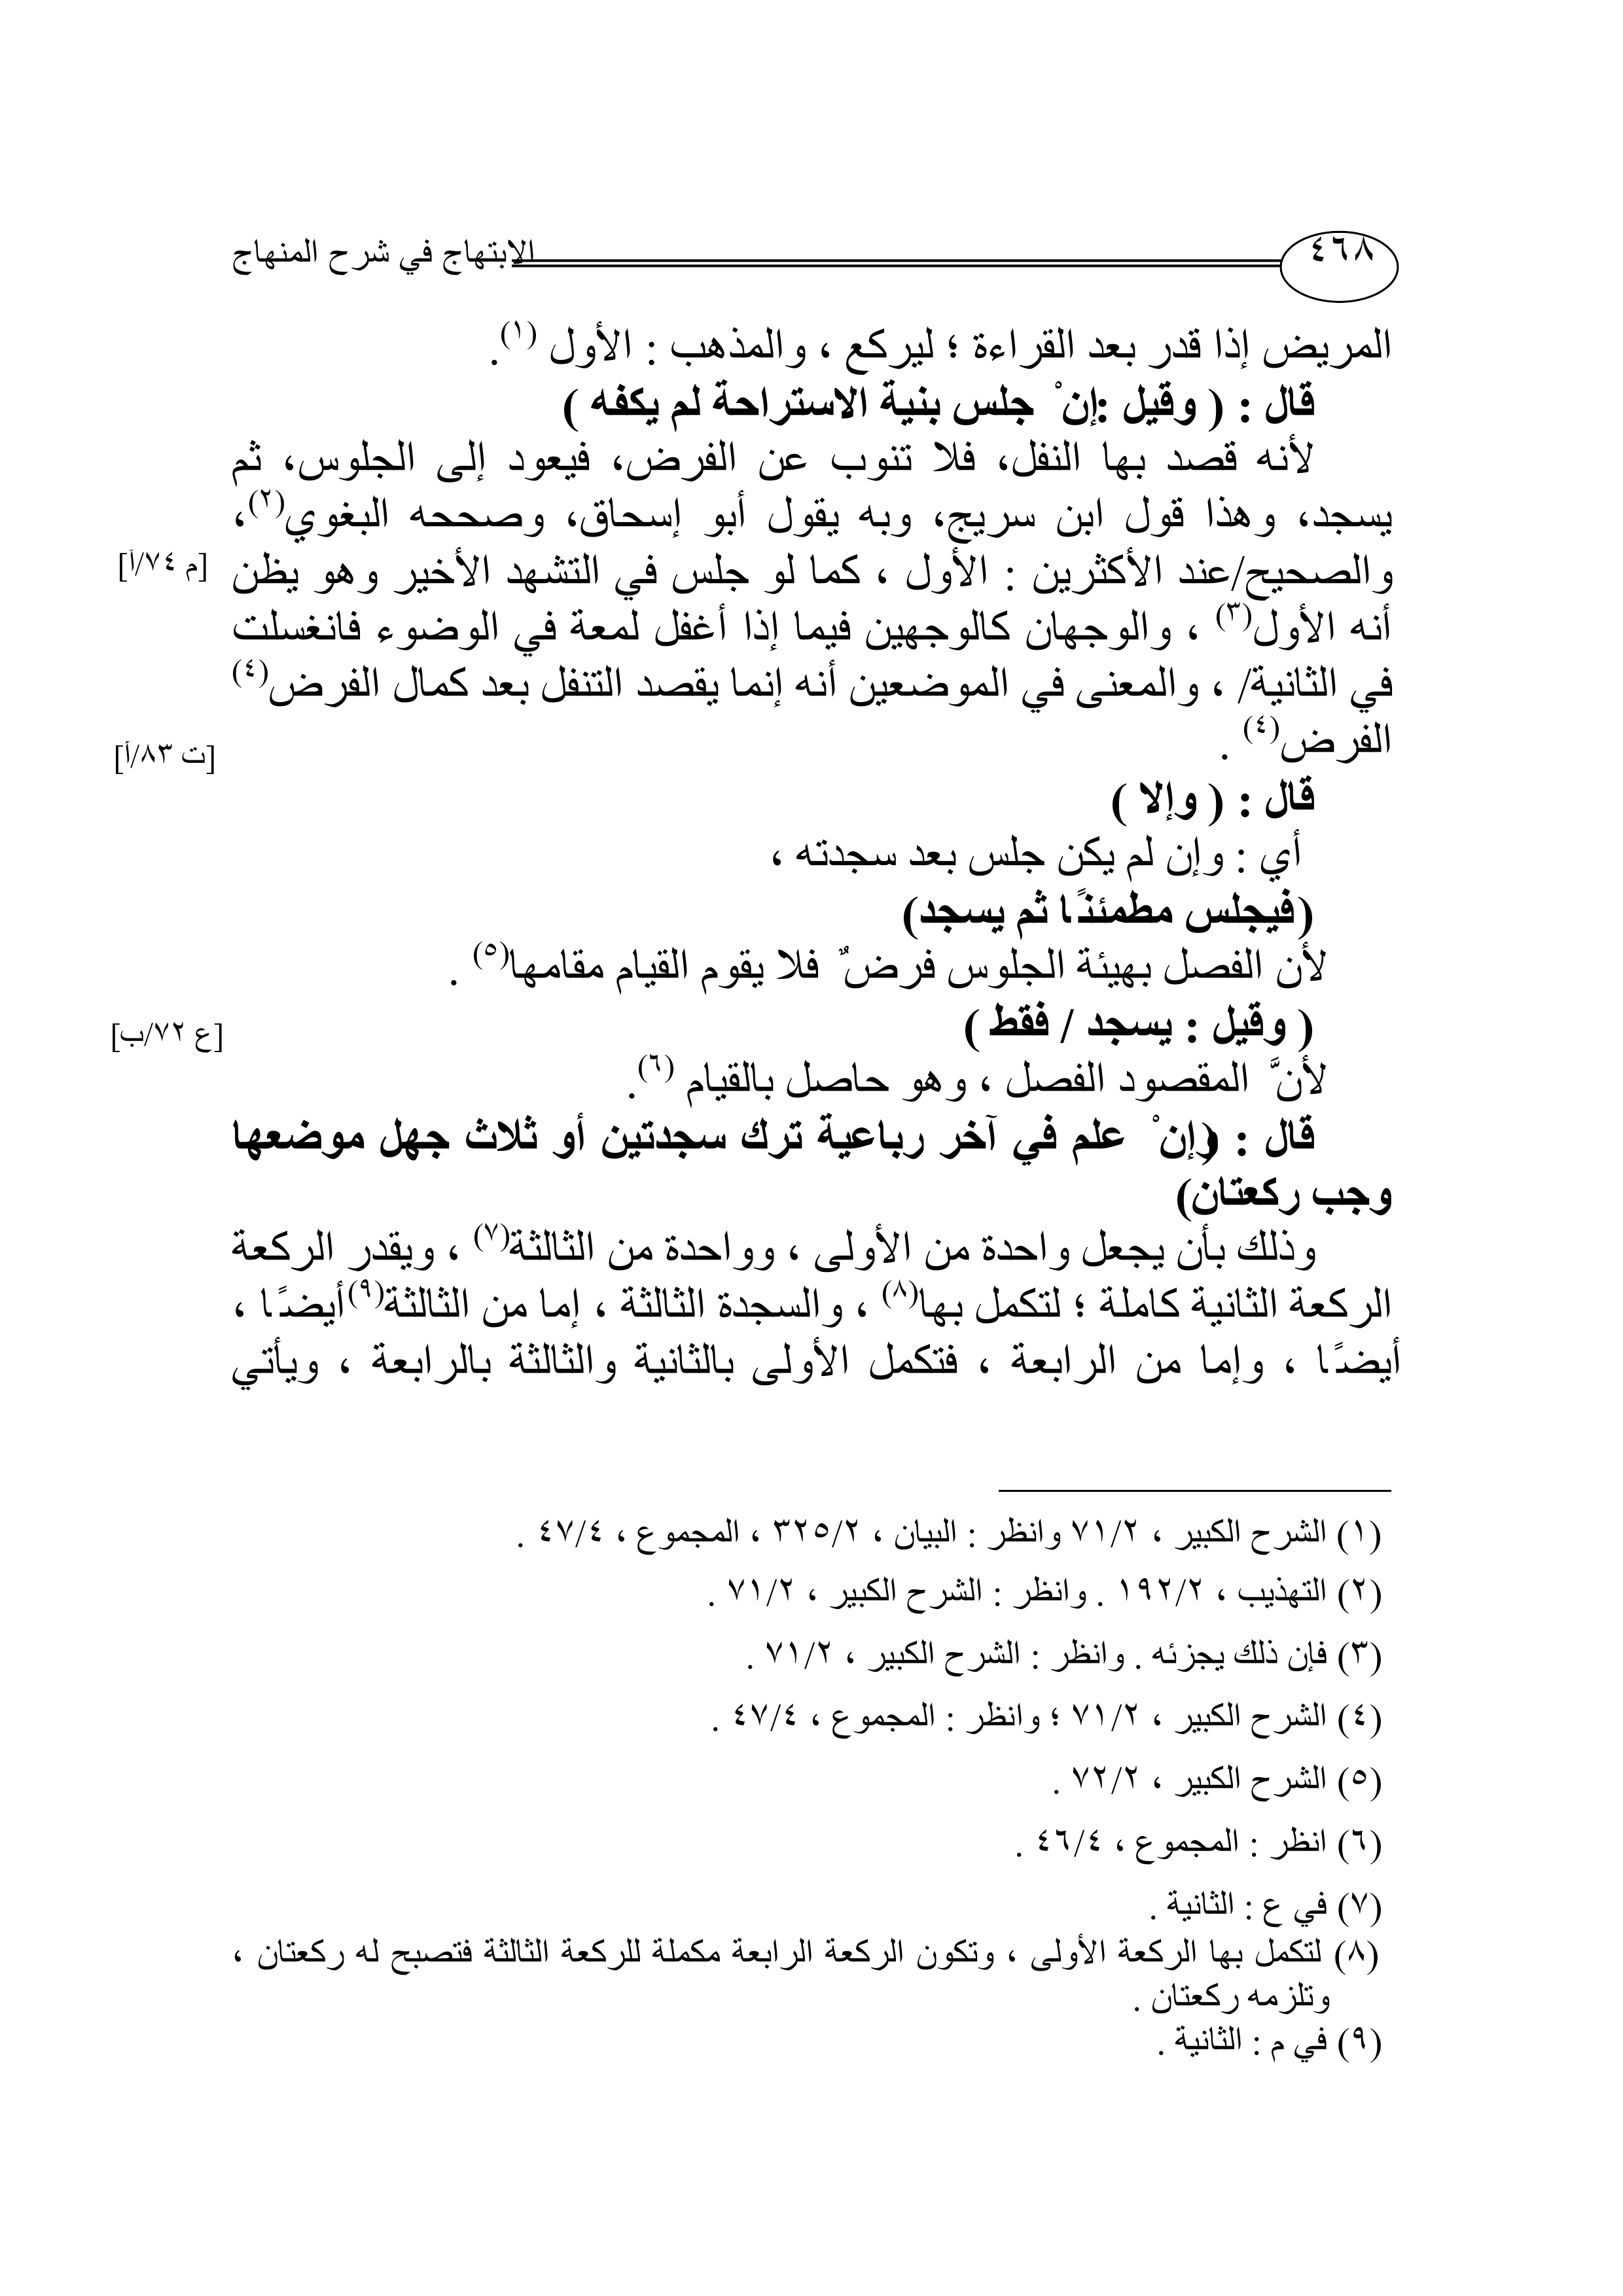 ٤٦٨
الابتهاج في شرح المنهاج
المريض إذا قدر بعد القراءة ؛ ليركع ، والمذهب : الأول (١).
قال : ( وقيل :إنْ جلس بنية الاستراحة لم يكفه )
لأنه قصد بها النفل، فلا تنوب عن الفرض، فيعود إلى الجلوس، ثم
يسجد، وهذا قول ابن سريج، وبه يقول أبو إسحاق، وصححه البغوي(٢)،
والصحيح/عند الأكثرين : الأول ، كما لو جلس في التشهد الأخير وهو يظن
[م ٧٤/أ]
أنه الأول(٣) ، والوجهان كالوجهين فيما إذا أغفل لمعة في الوضوء فانغسلت
في الثانية/ ، والمعنى في الموضعين أنه إنما يقصد التنفل بعد كمال الفرض(٤)
الفرض(٤) .
[ت ٨٣/أ]
قال : ( وإلا )
أي : وإن لم يكن جلس بعد سجدته ،
(فيجلس مطمئنًا ثم يسجد)
لأن الفصل بهيئة الجلوس فرضٌ فلا يقوم القيام مقامها(٥) .
( وقيل : يسجد / فقط )
[ع ٧٢/ب]
لأنَّ المقصود الفصل ، وهو حاصل بالقيام (٦).
قال : (وإنْ علم في آخر رباعية ترك سجدتين أو ثلاث جهل موضعها
وجب ركعتان)
وذلك بأن يجعل واحدة من الأولى ، وواحدة من الثالثة(٧) ، ويقدر الركعة
الركعة الثانية كاملة ؛ لتكمل بها(٨) ، والسجدة الثالثة ، إما من الثالثة(٩)أيضًا ،
أيضًا ، وإما من الرابعة ، فتكمل الأولى بالثانية والثالثة بالرابعة ، ويأتي
(١) الشرح الكبير ، ٧١/٢ وانظر : البيان ، ٣٢٥/٢ ، المجموع ، ٤٧/٤ .
(٢) التهذيب ، ١٩٢/٢ . وانظر : الشرح الكبير ، ٧١/٢ .
(٣) فإن ذلك يجزئه . وانظر : الشرح الكبير ، ٧١/٢ .
(٤) الشرح الكبير ، ٧١/٢ ؛ وانظر : المجموع ، ٤٧/٤ .
(٥) الشرح الكبير ، ٧٢/٢ .
(٦) انظر : المجموع ، ٤٦/٤ .
(٧) في ع : الثانية .
(٨) لتكمل بها الركعة الأولى ، وتكون الركعة الرابعة مكملة للركعة الثالثة فتصبح له ركعتان ،
وتلزمه ركعتان .
(٩) في م : الثانية .